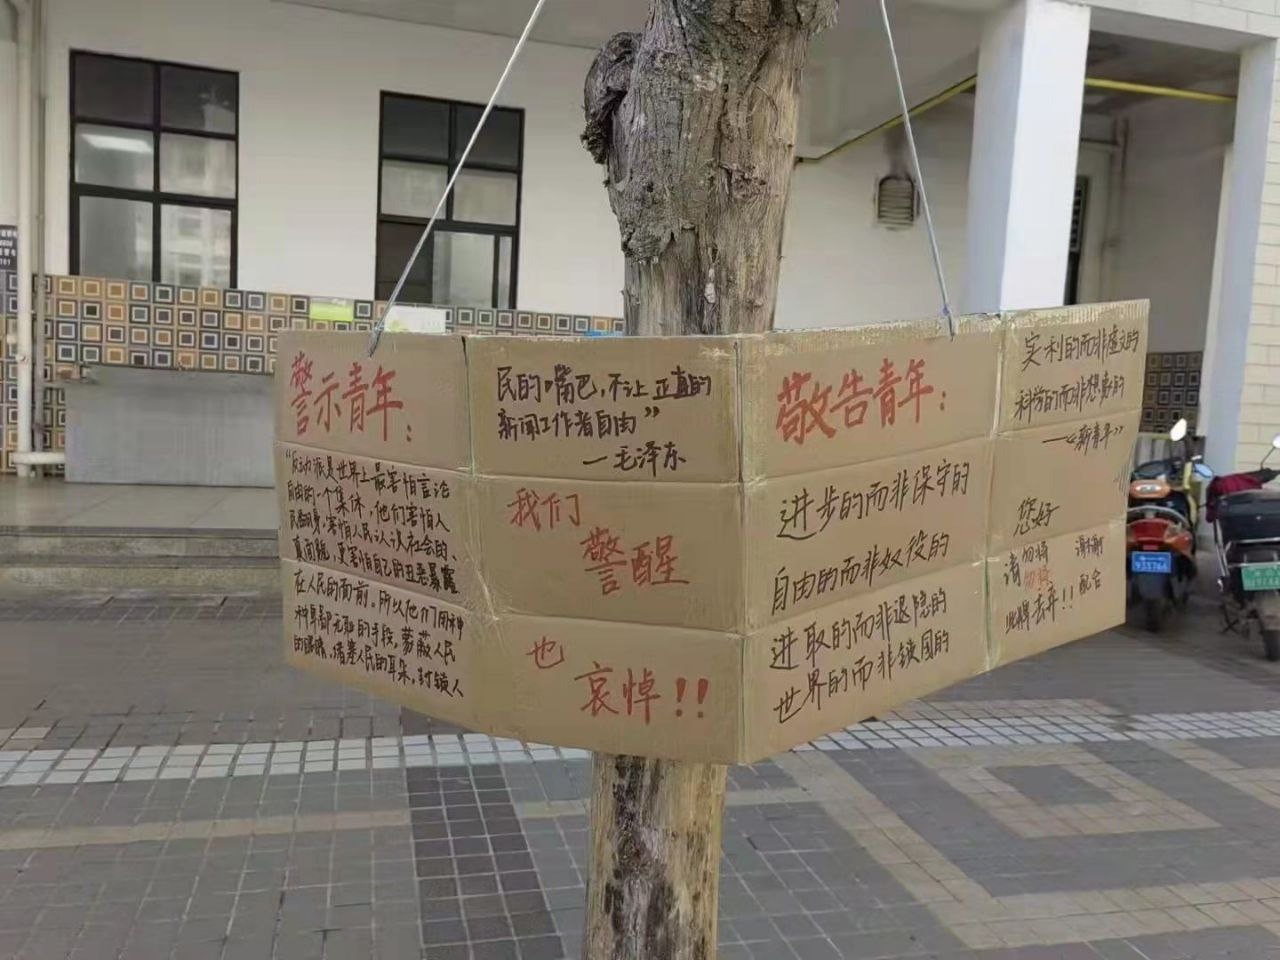 警示青年:
“反动派是世界上最害怕言论
自由的一个集体，他们害怕人
害怕人民认识社会的
真面貌，更害怕自己的丑恶暴露
在人民的面前。所以他们用种
种卑鄙无耻的手段，蒙蔽人民
的眼睛，堵塞人民的耳朵，封锁人
民的嘴巴，不让正真的
新闻工作者自由”
—毛泽东
我们
警醒
也
哀悼!!
敬告青年:
进步的而非保守的
自由的而非奴役的
进取的而非退隐的
世界的而非锁国的
实利的而非虚文的
科学的而非想象的
—《新青年》
您好
请勿将
勿将
此牌丢弃!!
谢谢
配合